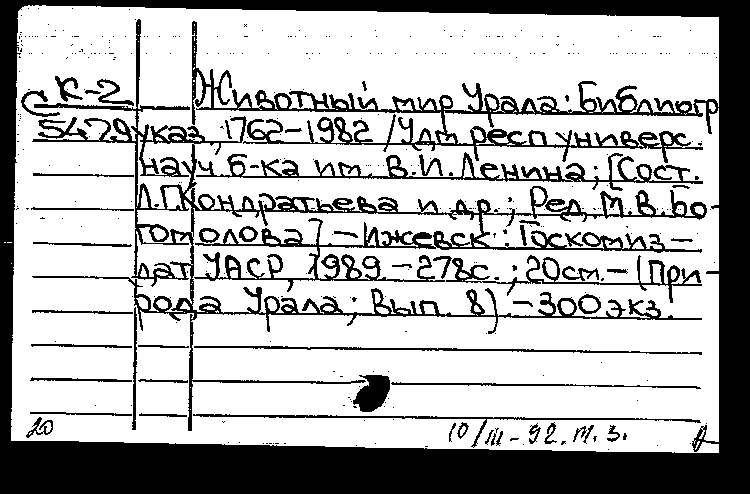 К-2 Животный мир Урала: Библиогр
5479 указ., 1762-1982 / Удм. респ. универс.
науч. б-ка им. В.И. Ленина; [Сост.
Л.П. Кондратьева и др.; Ред. М.В. Бо-
гомолова]. - Ижевск: Госкомиз-
дат УАСР, 1989. - 278с.; 20см. - (При-
рода Урала; Вып. 8) - 300 экз.
20 10/III-92. т. з.